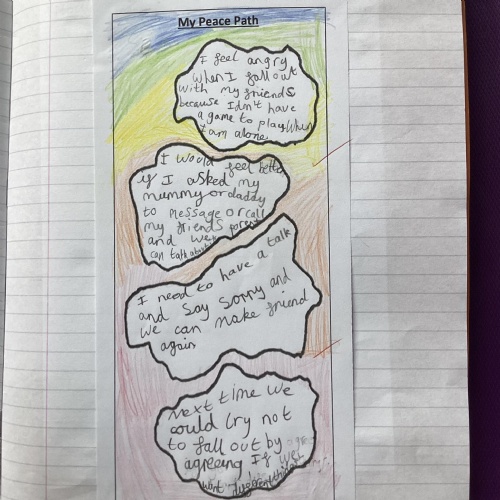 My Peace Path
I feel angry
when I fall out
with my friends
because I dn't have
a game to play when
I am alone.
I would feel better
if I asked my
mummy or daddy
to message or call
my friends parent
and we
can talk about
I need to have a talk
and say sorry and
we can make friend
again
Next time we
could try not
to fall out by
agreeing If we
want different things